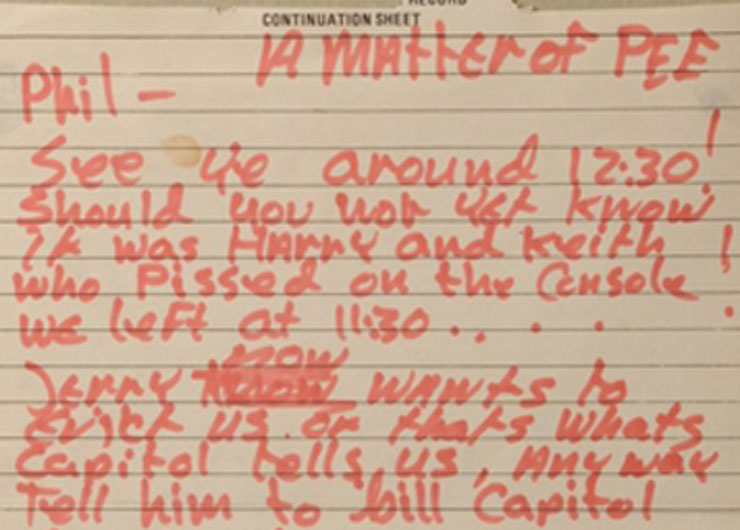 RECORD
CONTINUATION SHEET
A MAtter of PEE
Phil —
See ye around 12:30!
Should you not yet know
it was HARRY and Keith
who Pissed on the Console!
we left at 11:30 . . . .
Jerry now wants to
Evict us. or thats whats
Capitol tells us. Anyway
Tell him to bill Capitol